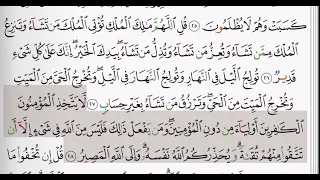 كَسَبَتْ وَهُمْ لَا يُظْلَمُونَ ٢٥ قُلِ اللَّهُمَّ مَالِكَ الْمُلْكِ تُؤْتِي الْمُلْكَ مَن تَشَاءُ وَتَنزِعُ
الْمُلْكَ مِمَّن تَشَاءُ وَتُعِزُّ مَن تَشَاءُ وَتُذِلُّ مَن تَشَاءُ بِيَدِكَ الْخَيْرُ إِنَّكَ عَلَىٰ كُلِّ شَيْءٍ
قَدِيرٌ ٢٦ تُولِجُ اللَّيْلَ فِي النَّهَارِ وَتُولِجُ النَّهَارَ فِي اللَّيْلِ وَتُخْرِجُ الْحَيَّ مِنَ الْمَيِّتِ
وَتُخْرِجُ الْمَيِّتَ مِنَ الْحَيِّ وَتَرْزُقُ مَن تَشَاءُ بِغَيْرِ حِسَابٍ ٢٧ لَّا يَتَّخِذِ الْمُؤْمِنُونَ
الْكَافِرِينَ أَوْلِيَاءَ مِن دُونِ الْمُؤْمِنِينَ وَمَن يَفْعَلْ ذَٰلِكَ فَلَيْسَ مِنَ اللَّهِ فِي شَيْءٍ إِلَّا أَن
تَتَّقُوا مِنْهُمْ تُقَاةً وَيُحَذِّرُكُمُ اللَّهُ نَفْسَهُ وَإِلَى اللَّهِ الْمَصِيرُ ٢٨ قُلْ إِن تُخْفُوا مَا